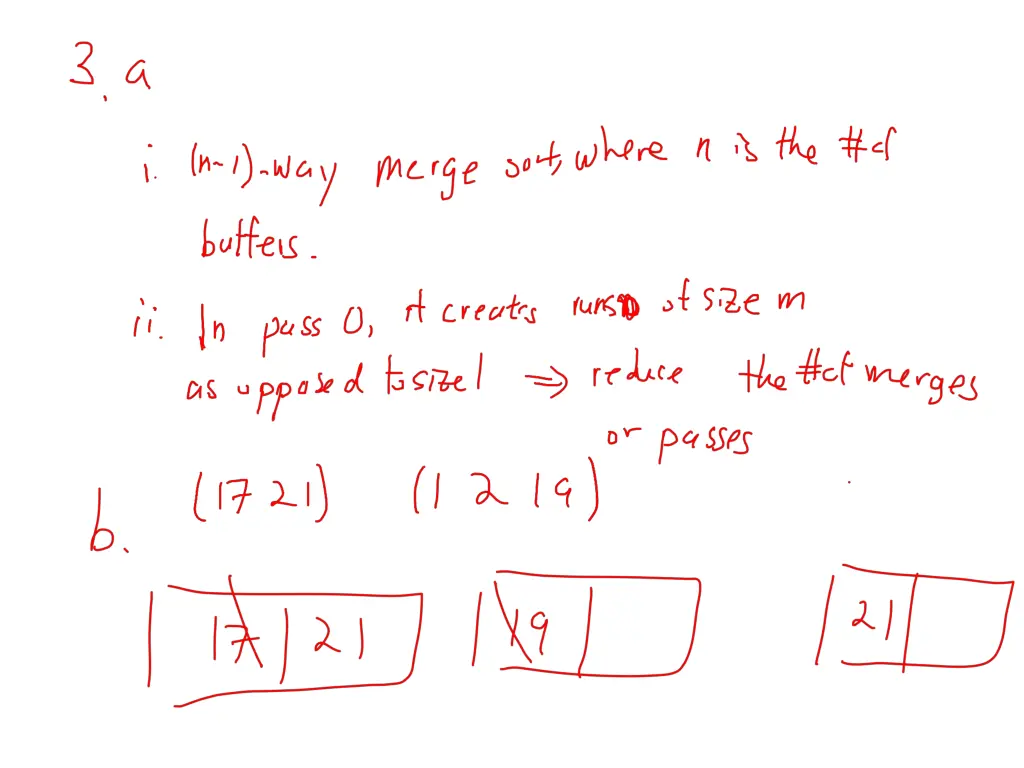 3. a
i. (n-1)-way merge sort, where n is the # of
buffers.
ii. In pass 0, it creates runs of size m
as opposed to size 1 ⇒ reduce the # of merges
or passes
b. (17 21) (1 2 19)
17 | 21 19 21